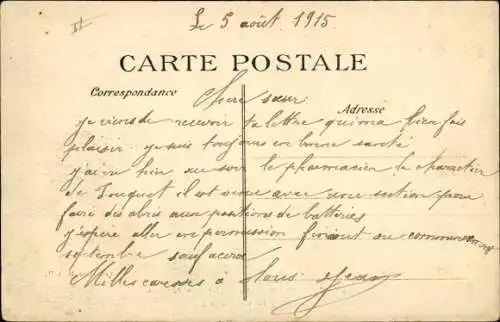 Le 5 août 1915
CARTE POSTALE
Correspondance
Adresse
Chere sœur
je viens de recevoir ta lettre qui ma bien fais
plaisir je suis toujours en bonne santé
j'ai vu hier au soir le pharmacien le
de Touquet il est venu avec une section pour
faire des abris aux positions de batteries
j'espère aller en permission fin aout ou commencement
septembre sauf
Milles caresses à tous Jean